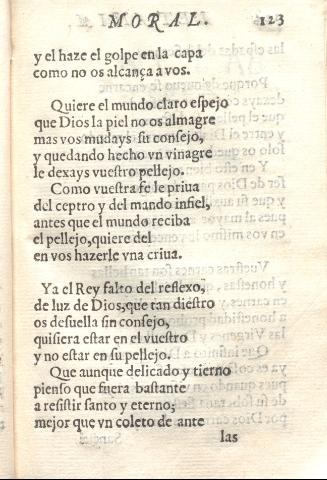 MORAL. 123
y el haze el golpe en la capa
como no os alcança a vos.
Quiere el mundo claro espejo
que Dios la piel no os almagre
mas vos mudays su consejo,
y quedando hecho vn vinagre
le dexays vuestro pellejo.
Como vuestra fe le priua
del ceptro y del mando infiel,
antes que el mundo reciba
el pellejo, quiere del
en vos hazerle vna criua.
Ya el Rey falto del reflexo,
de luz de Dios, que tan diestro
os desuella sin consejo,
quisiera estar en el vuestro
y no estar en su pellejo.
Que aunque delicado y tierno
pienso que fuera bastante
a resistir santo y eterno;
mejor que vn coleto de ante
las